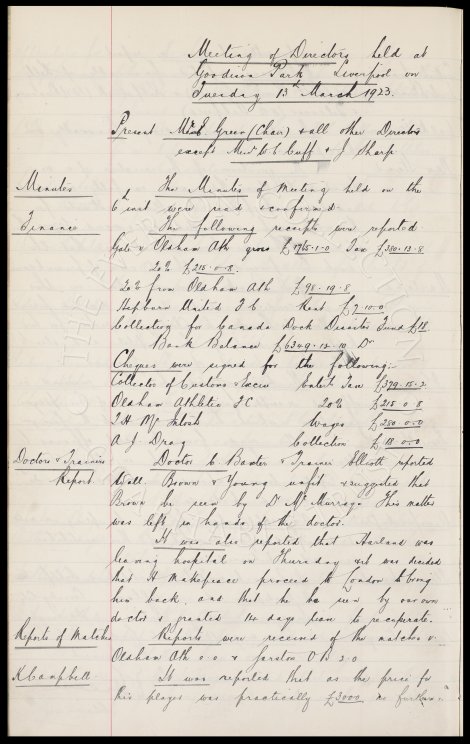 Meeting of Directors held at
Goodison Park Liverpool on
Tuesday 13th March 1923.
Present Mr E Green (Chair) & all other Directors
except Messrs W. C. Cuff & J Sharp
Minutes
The Minutes of Meeting held on the
6th inst were read & confirmed.
Finance
The following receipts were reported.
Gate v Oldham Ath gross £1765-1-0 Tax £380-13-8
20% £215-0-8.
20% from Oldham Ath £98-19-8
Hepburn United F C Rent £7-10-0
Collecting for Canada Dock Disaster Fund £18.
Bank Balance £6349-13-10 Dr
Cheques were signed for the following:-
Collector of Customs & Excise Entert Tax £379-15-2
Oldham Athletic F C 20% £215 0 8
T H McIntosh Wages £280-0-0
A J Drag Collection £18-0-0
Doctors & Trainers
Report
Doctor C. Baxter & Trainer Elliott reported
Wall Brown & Young unfit & suggested that
Brown be seen by Dr McMurray. This matter
was left in hands of the doctor.
It was also reported that Harland was
leaving hospital on Thursday & it was decided
that H Makepeace proceed to London to bring
him back, and that he be seen by our own
doctor & granted 14 days leave to recuperate.
Reports of Matches
Reports were received of the matches v.
Oldham Ath 0.0 & Garston 2.0
K. Campbell.
It was reported that as the price for
this player was practically £3000 no further